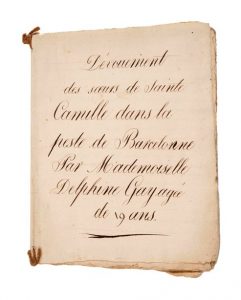 Dévouement
des sœurs de Sainte
Camille dans la
peste de Barcelonne
Par Mademoiselle
Delphine Gay agée
de 19 ans.